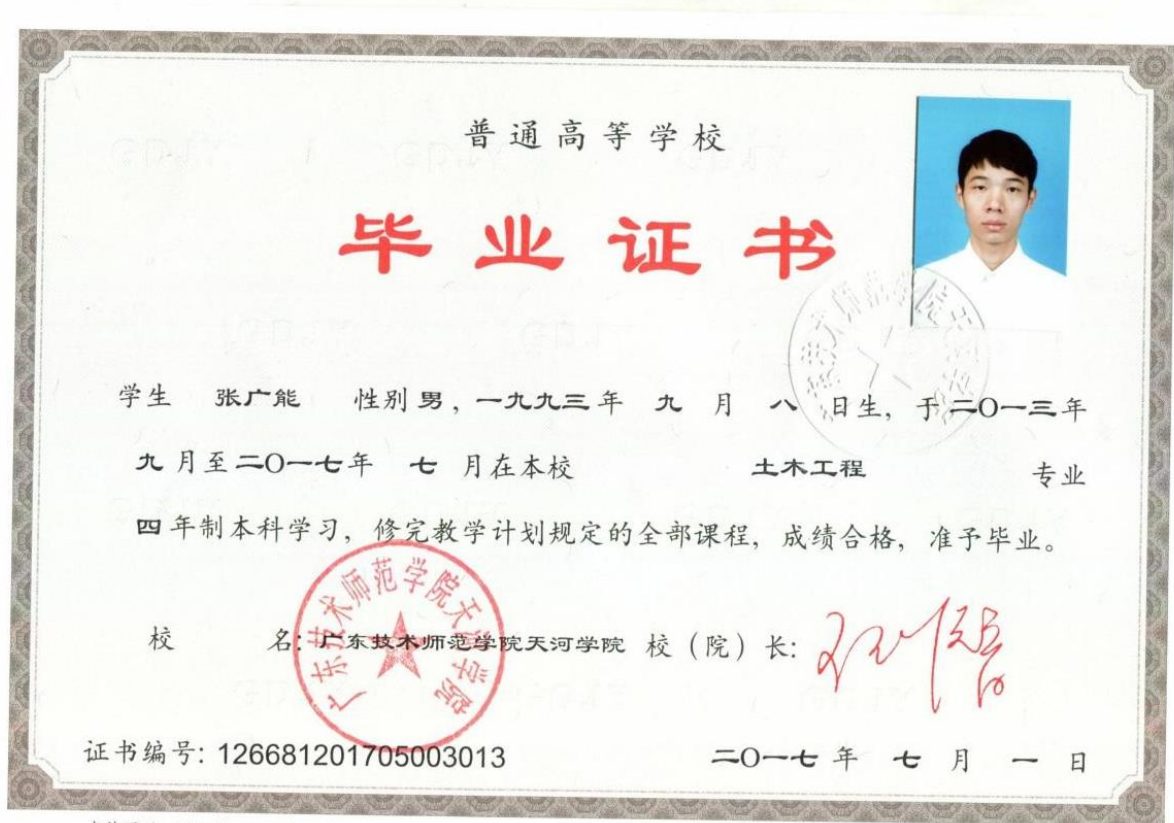 普通高等学校
毕业证书
学生 张广能 性别 男，一九九三年 九 月 八 日生，于二〇一三年
九月至二〇一七年 七 月在本校 土木工程 专业
四年制本科学习，修完教学计划规定的全部课程，成绩合格，准予毕业。
广东技术师范学院天河学院
校 名：广东技术师范学院天河学院 校（院）长：
证书编号：126681201705003013 二〇一七年 七 月 一 日